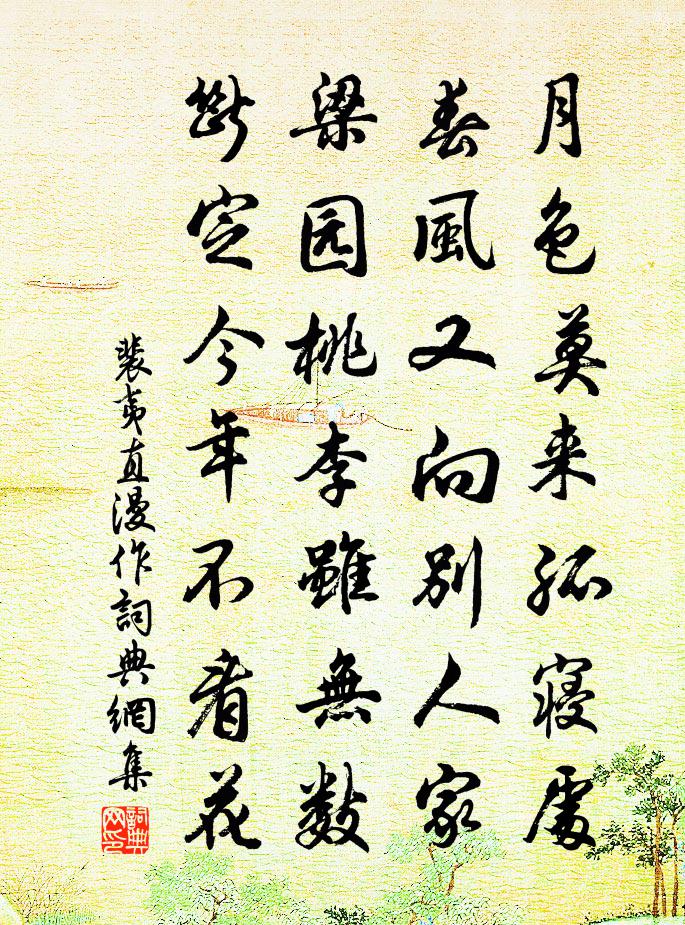 月色莫来孤寝處
春風又向別人家
梁园桃李雖無數
斷定今年不看花
裴夷直漫作詞典網集
詞典网印